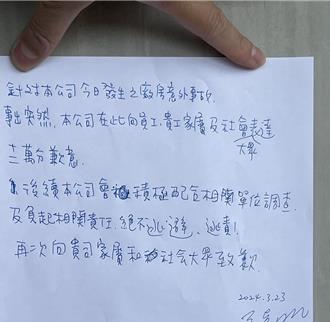 針對本公司今日發生之廠房意外事故,
事出突然,本公司在此向員工,貴工家屬及社會表達
大眾
十二萬分歉意.
後續本公司會積極配合相關單位調查.
及負起相關責任.絕不逃避、逃責!
再次向貴司家屬和社會大眾致歉.
2024.3.23